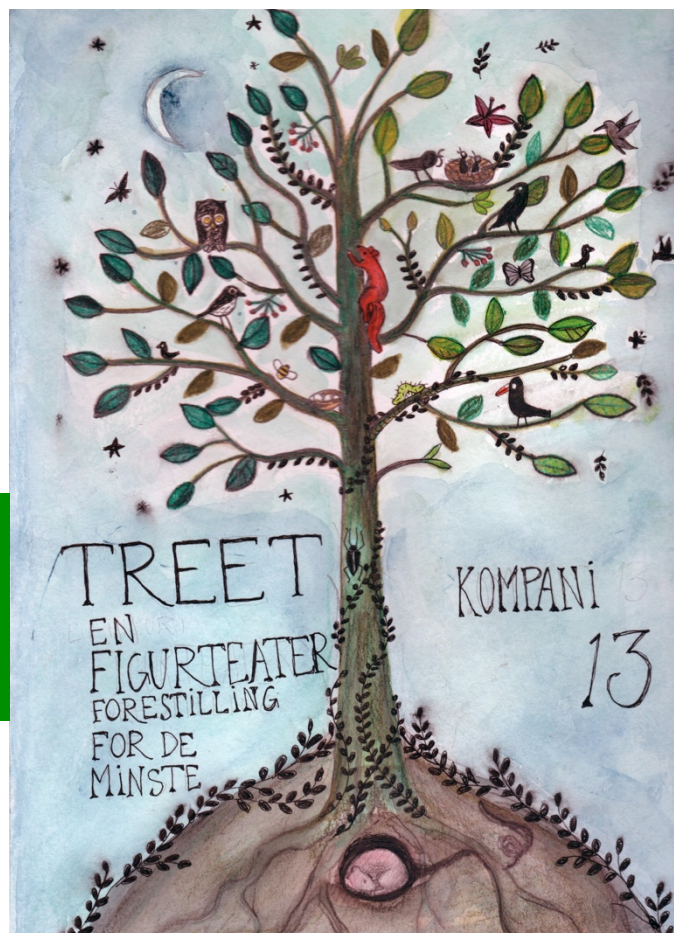 TREET
EN
FIGURTEATER
FORESTiLLiNG
FOR DE
MiNSTE
KOMPANi
13